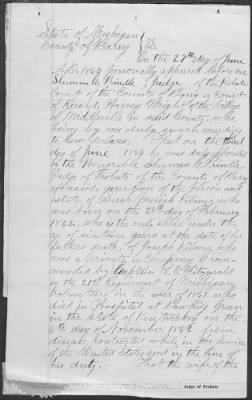 State of Michigan
County of Barry } SS.
On the 27th day of June
A.D. 1869 personally appeared before me
Sherman C. Prindle, Judge of the Probate
Court of the County of Barry a Court
of Record, Harvey Wright of the Village
of Middleville in said County, who
being by me duly sworn
That on the third
day of June 1869 he was duly appointed
by the Honorable Sherman C. Prindle
Judge of Probate of the County of Barry
aforesaid, guardian of the person and
estate of Dorah
was born on the 28th day of February
1862, who is the only child under the
age of sixteen years at the date of his
fathers death, of Joseph
was a private in Company C com-
manded by Captain Fitzgerald
in the 21st Regiment of Michigan
Volunteers in the war of 1861 who
died in Hospital at Bowling Green
in the State of Kentucky on the
6th day of November 1862, from
disease contracted while in the service
of the United States and in the line of
his duty. That the wife of the
Judge of Probate.